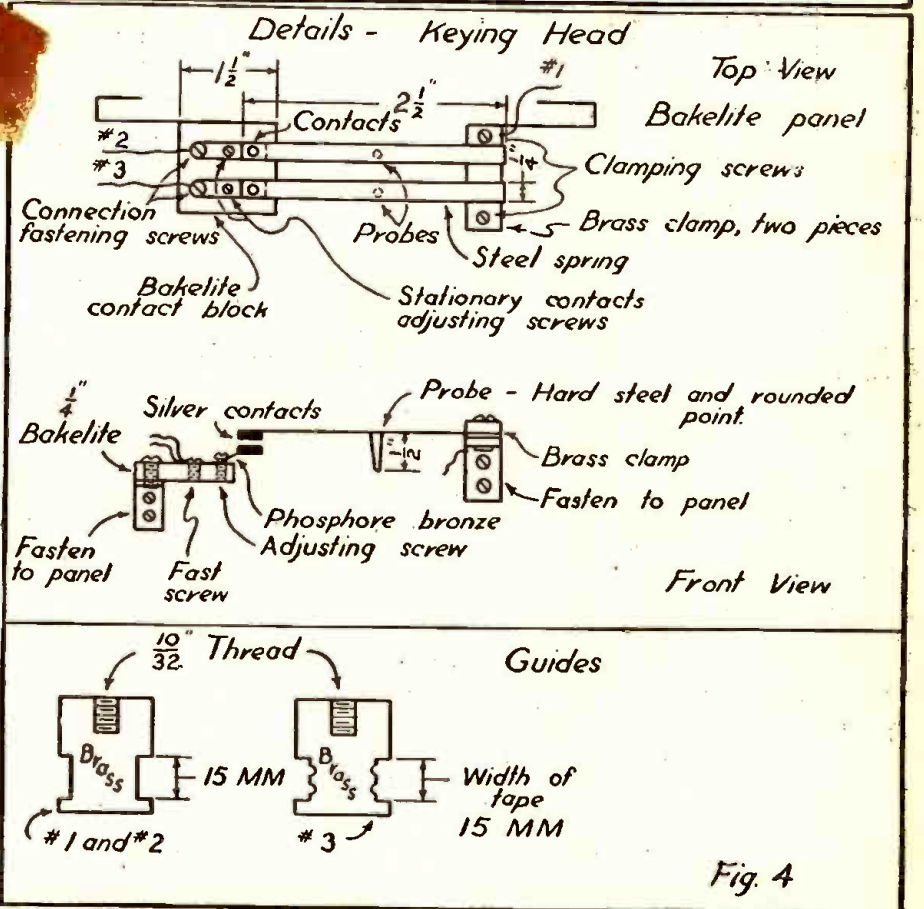 Details - Keying Head
Top View
Bakelite panel
1 1/2"
2 1/2"
#1
Contacts
#2
#3
1/4"
Clamping screws
Connection
fastening screws
Probes
Brass clamp, two pieces
Steel spring
Bakelite
contact block
Stationary contacts
adjusting screws
1/4"
Bakelite
Silver contacts
Probe - Hard steel and rounded
point.
1/2"
Brass clamp
Fasten to panel
Phosphore bronze
Adjusting screw
Fasten
to panel
Fast
screw
Front View
10/32" Thread
Guides
Brass
15 MM
#1 and #2
Brass
Width of
tape
15 MM
#3
Fig. 4